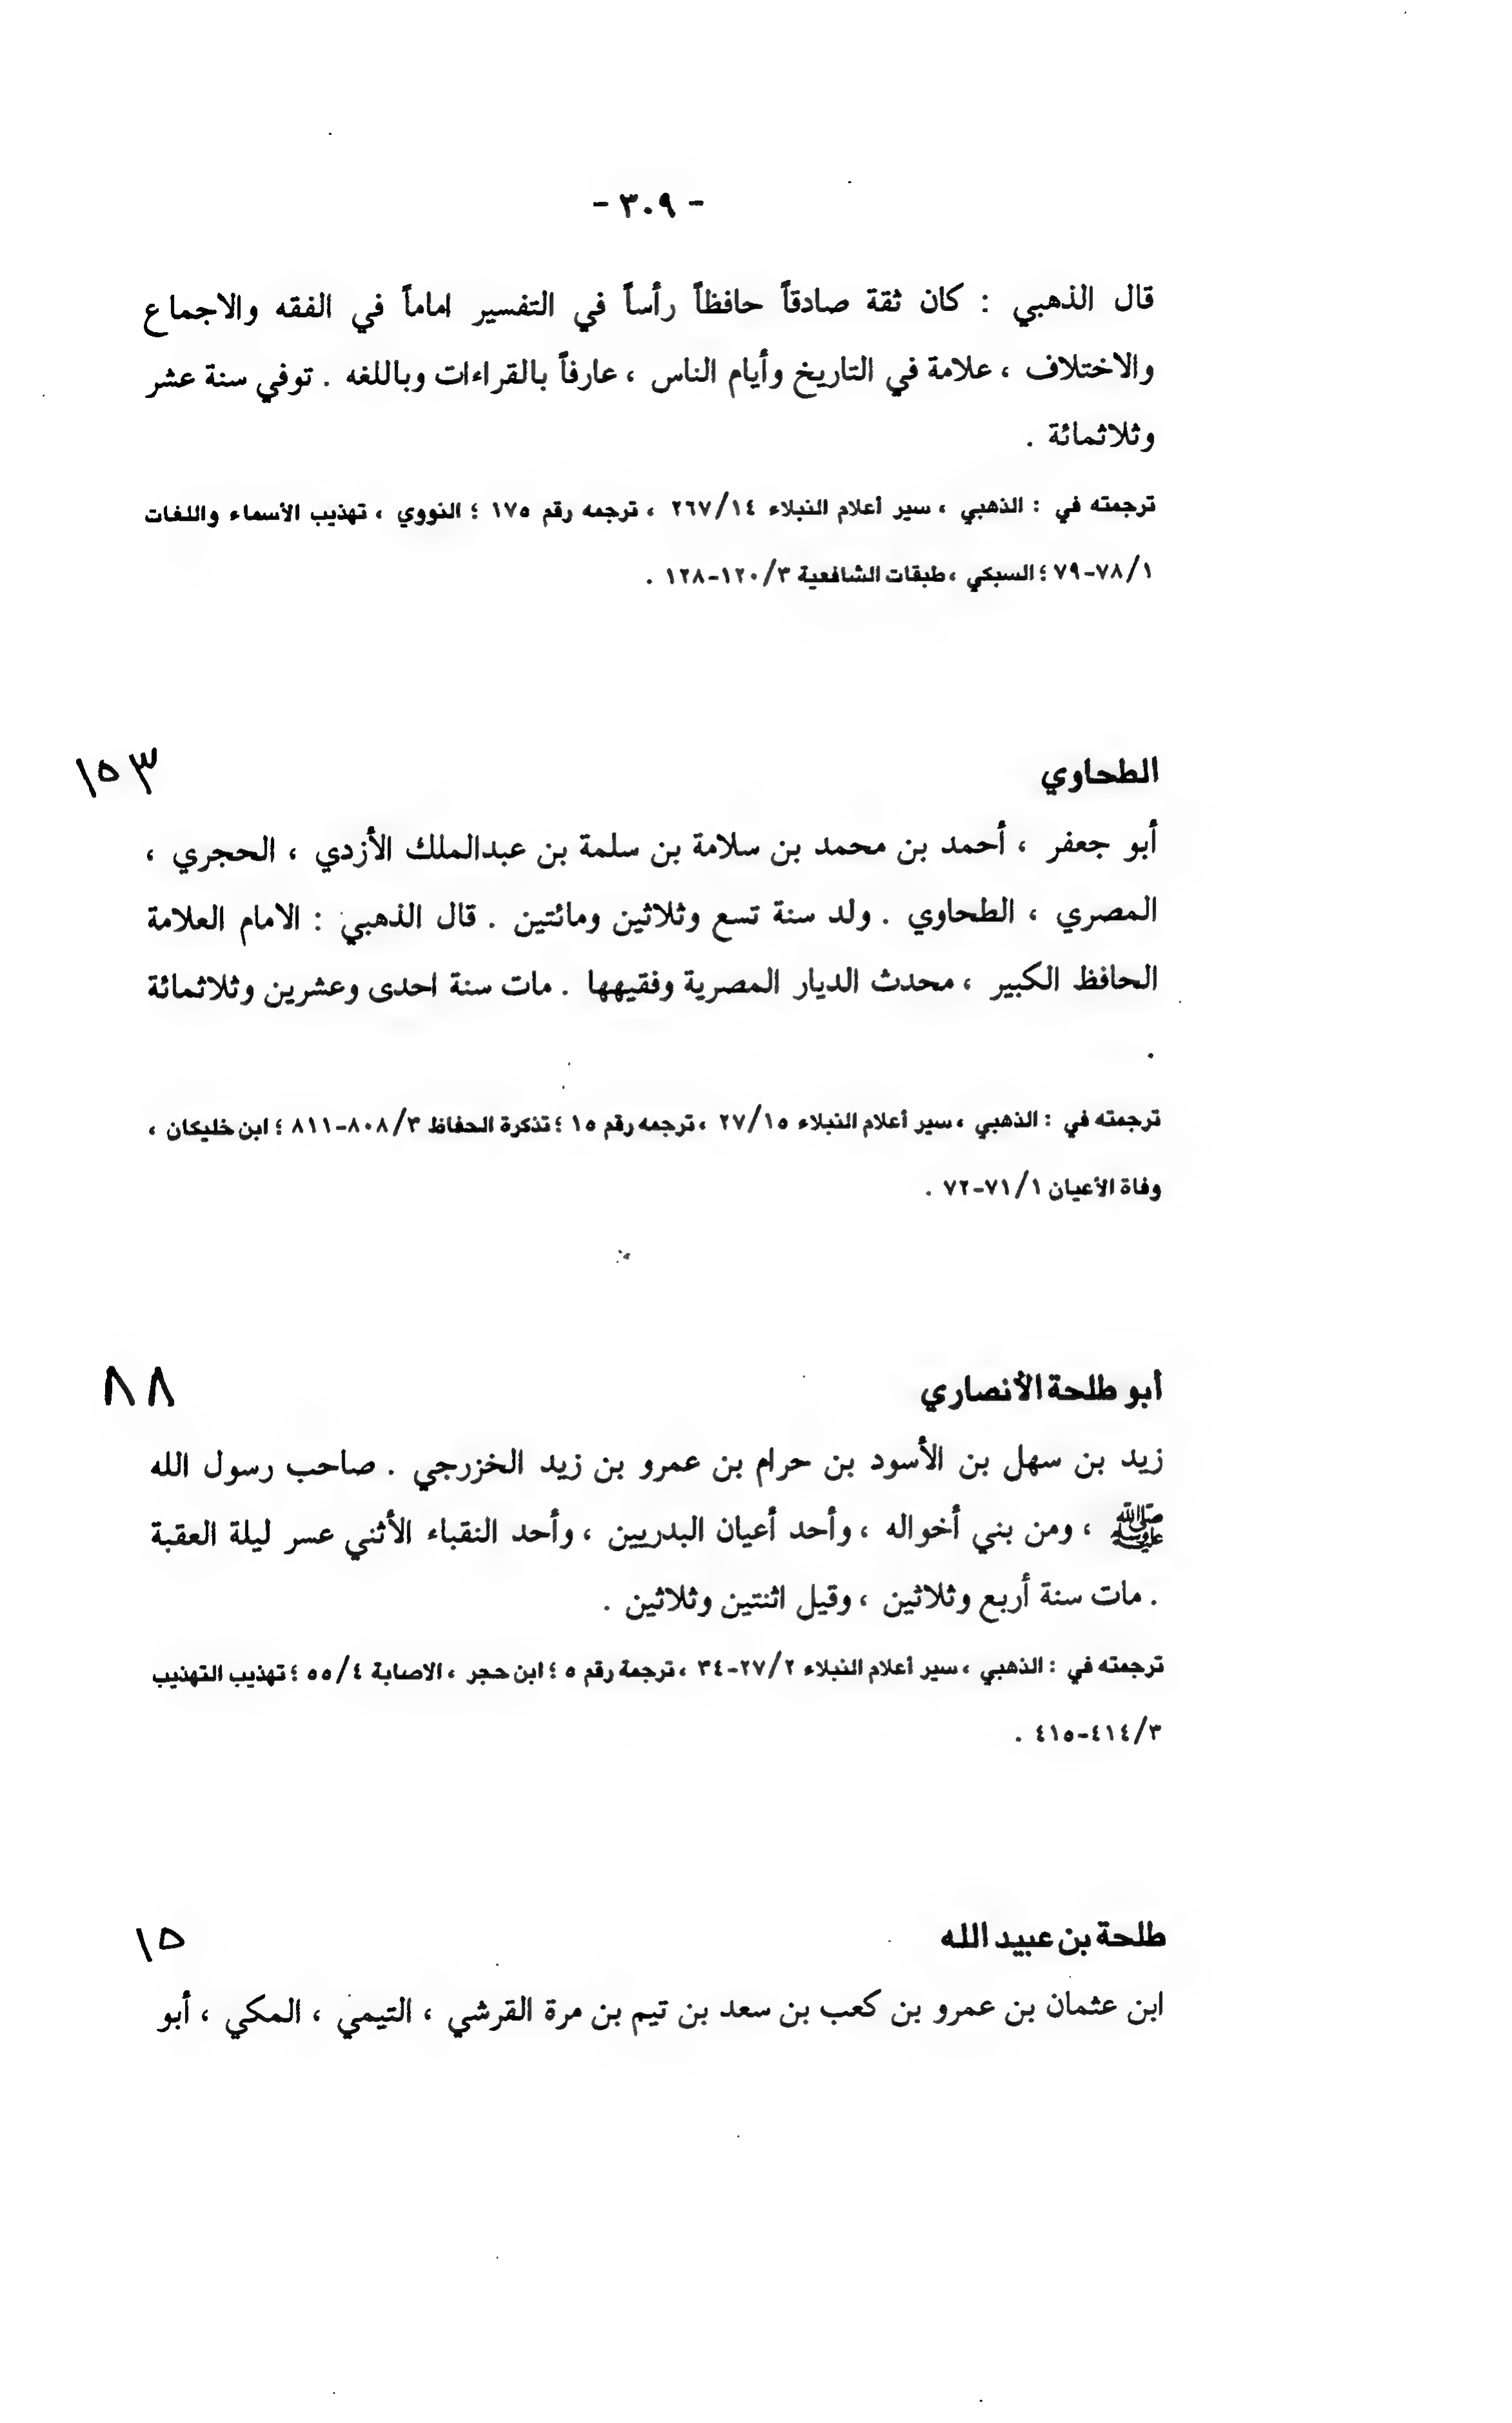 - ٣٠٩ -
قال الذهبي : كان ثقة صادقاً حافظاً رأساً في التفسير اماماً في الفقه والاجماع
والاختلاف ، علامة في التاريخ وأيام الناس ، عارفاً بالقراءات وباللغه . توفي سنة عشر
وثلاثمائة .
ترجمته في : الذهبي ، سير أعلام النبلاء ٢٦٧/١٤ ، ترجمه رقم ١٧٥ ؛ النووي ، تهذيب الأسماء واللغات
٧٨/١-٧٩ ؛ السبكي ، طبقات الشافعية ١٢٠/٣-١٢٨ .
الطحاوي ١٥٣
أبو جعفر ، أحمد بن محمد بن سلامة بن سلمة بن عبدالملك الأزدي ، الحجري ،
المصري ، الطحاوي . ولد سنة تسع وثلاثين ومائتين . قال الذهبي : الامام العلامة
الحافظ الكبير ، محدث الديار المصرية وفقيهها . مات سنة احدى وعشرين وثلاثمائة
.
ترجمته في : الذهبي ، سير أعلام النبلاء ٢٧/١٥ ، ترجمه رقم ١٥ ؛ تذكرة الحفاظ ٨٠٨/٣-٨١١ ؛ ابن خليكان ،
وفاة الأعيان ٧١/١-٧٢ .
أبو طلحة الأنصاري ٨٨
زيد بن سهل بن الأسود بن حرام بن عمرو بن زيد الخزرجي . صاحب رسول الله
ﷺ ، ومن بني أخواله ، وأحد أعيان البدريين ، وأحد النقباء الأثني عسر ليلة العقبة
. مات سنة أربع وثلاثين ، وقيل اثنتين وثلاثين .
ترجمته في : الذهبي ، سير أعلام النبلاء ٢٧/٢-٣٤ ، ترجمة رقم ٥ ؛ ابن حجر ، الاصابة ٥٥/٤ ؛ تهذيب التهذيب
٤١٤/٣-٤١٥ .
طلحة بن عبيد الله ١٥
ابن عثمان بن عمرو بن كعب بن سعد بن تيم بن مرة القرشي ، التيمي ، المكي ، أبو